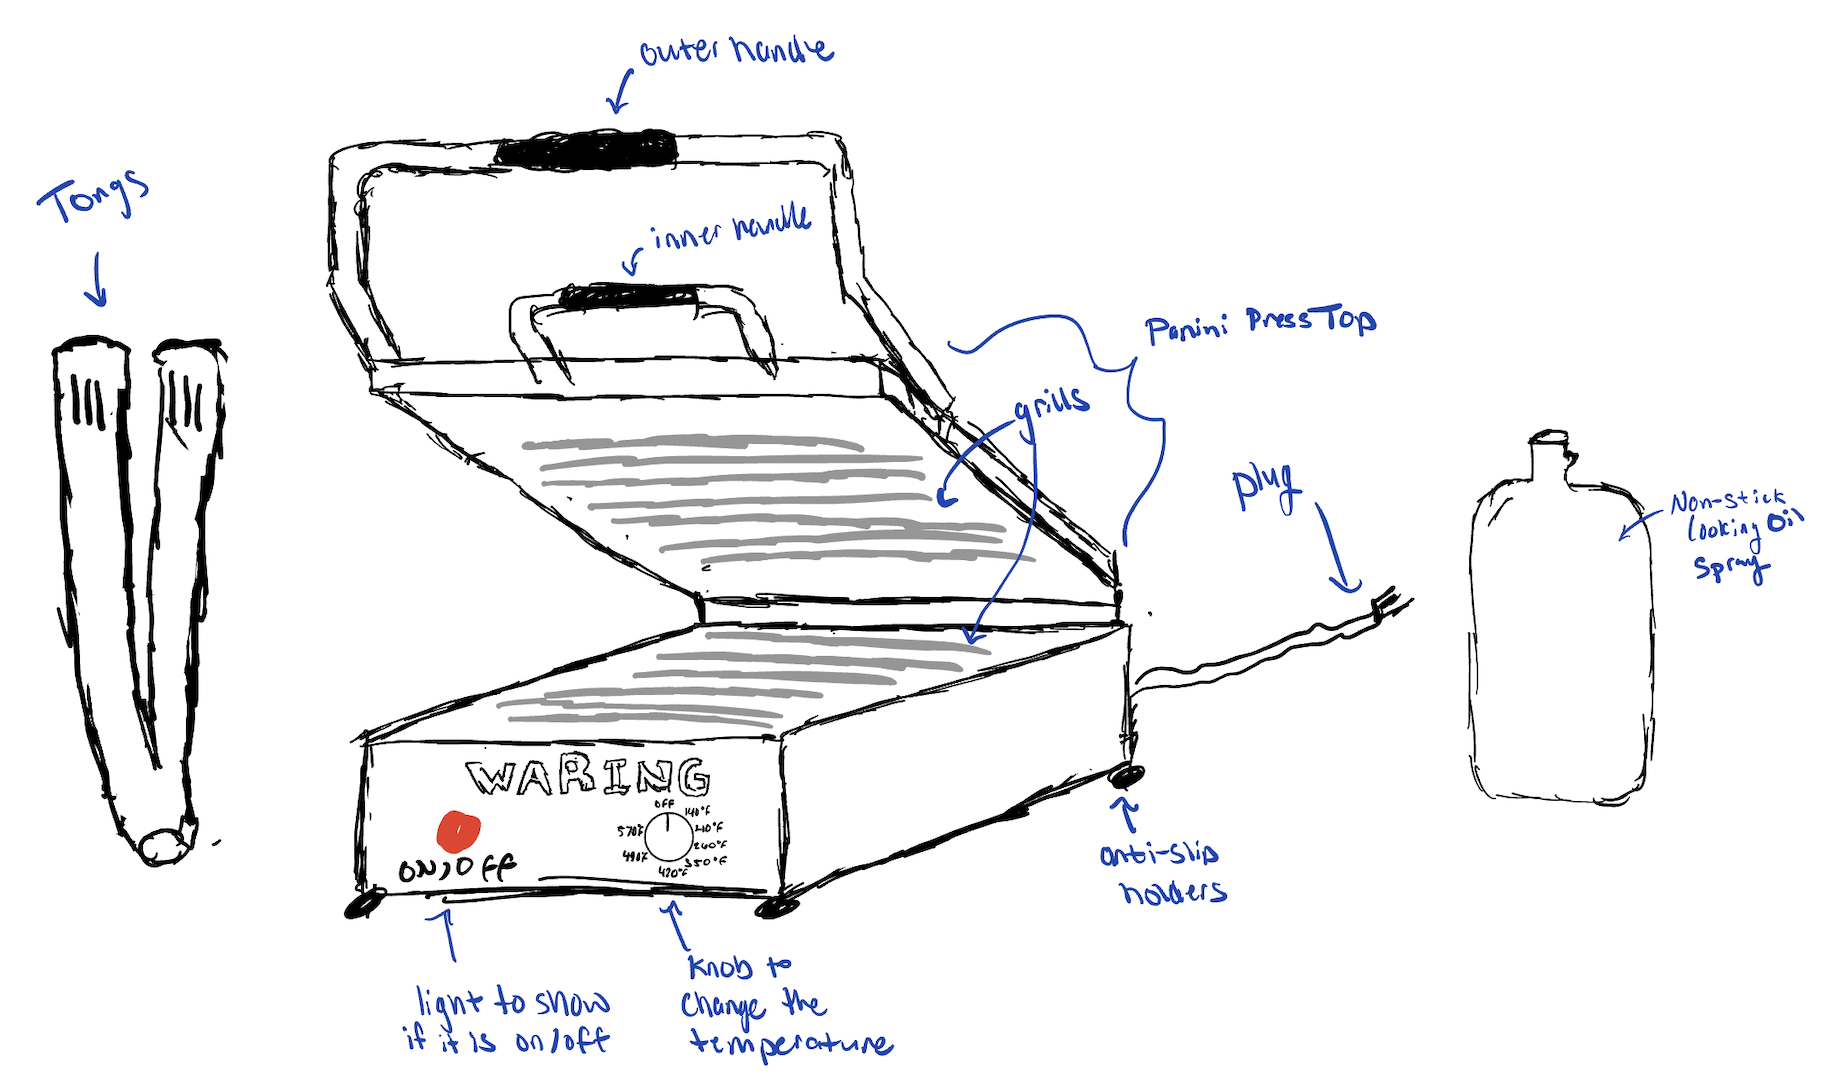 outer handle
Tongs
inner handle
Panini Press Top
grills
plug
Non-stick
Cooking Oil
Spray
WARING
OFF
140°F
210°F
260°F
350°F
420°F
490°F
570°F
ON/OFF
anti-slip
holders
light to show
if it is on/off
Knob to
change the
temperature